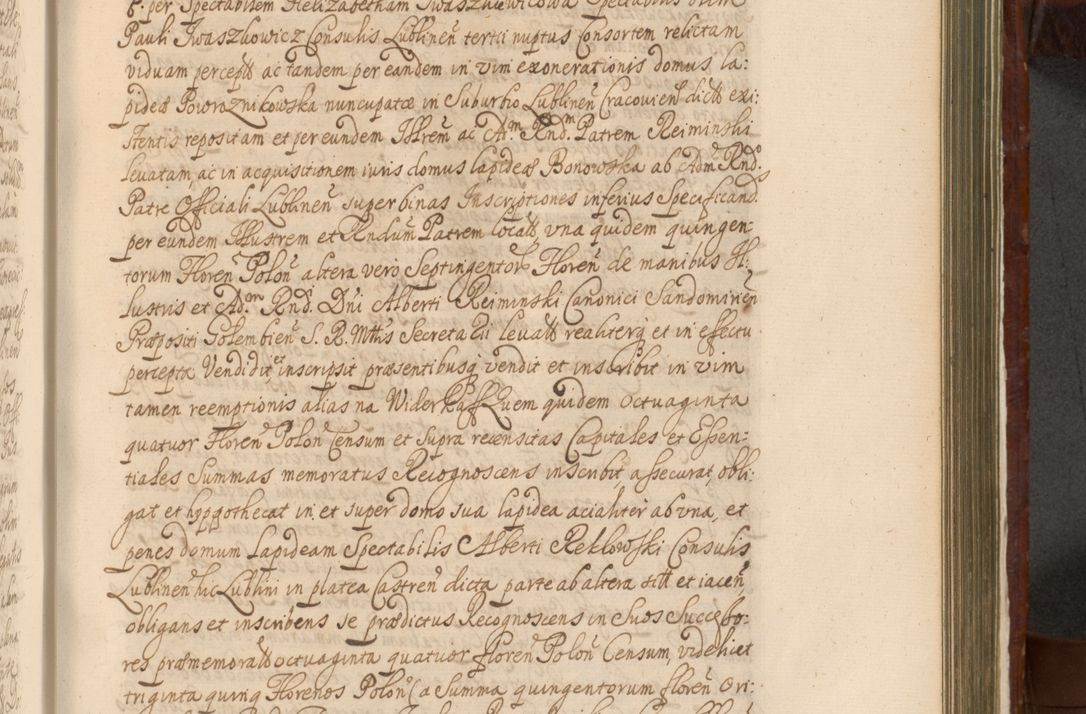 per Spectabilem Helizabetham Iwaszkiewicowa Spectabilis olim
Pauli Iwaszkowicz Consulis Lublineñ tertii nuptus Consortem relictam
viduam percepts ac tandem per eandem in vim exonerationis domus la:
pideæ Powroznikowska nuncupatæ in Suburbio Lublineñ Cracovieñ dicts exi:
stentis repositam et per eundem Illrem ac Adm Rnd.m Patrem Reiminski
levatam, ac in acquisitionem iuris domus lapideæ Bonowska ab Adm Rnd.o
Patre Officiali Lublineñ super binas Inscriptiones inferius Specificand.s
per eundem Illustrem et Rndum Patrem locats vna quidem quingen:
torum Floreñ Poloñ altera vero Septingentor Floreñ de manibus Il:
lustris et Ad.m Rnd.i Dñi Alberti Reiminski Canonici Sandomirieñ
Præpositi Golembieñ S. R. Mttis Secretarii levats realiterq et in effectu
percepta Vendidit et inscripsit præsentibusq vendit et inscribit in vim
tamen reemptionis alias na Widerkaff Quem quidem octuaginta
quatuor Floreñ Poloñ Censum et supra recensitas Capitales et Essen:
tiales Summas memoratus Recognoscens inscribit, assecurat, obli:
gat et hyppothecat in et super domo sua lapidea aciahter ab vna, et
penes domum Lapideam Spectabilis Alberti Reklowski Consulis
Lublineñ hic Lublini in platea Castreñ dicta parte ab altera sitt et iaceñ,
obligans et inscribens se prædictus Recognoscens in Suos Successo:
res præmemorats octuaginta quatuor floreñ Poloñ Censum, videlicet
triginta quinq Florenos Poloñ (a Summa quingentorum floreñ Ori: